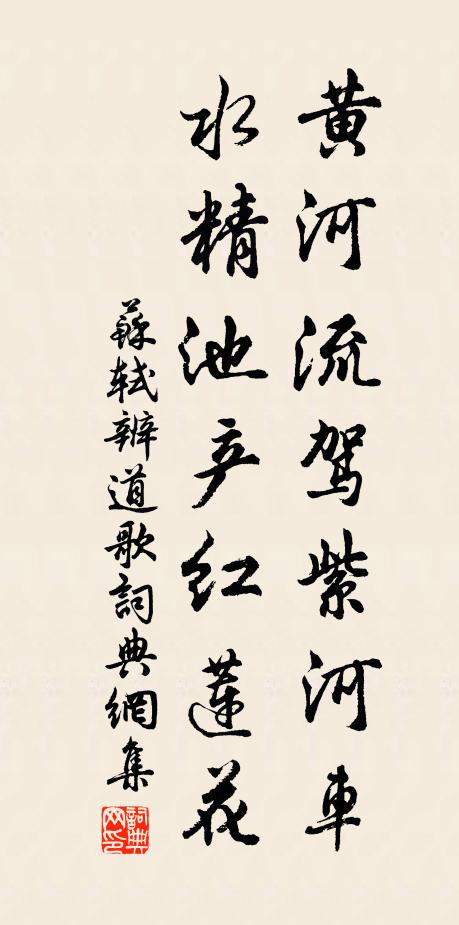 黄河流驾紫河車
水精池产红蓮花
蘇軾辨道歌詞典網集
詞典网印